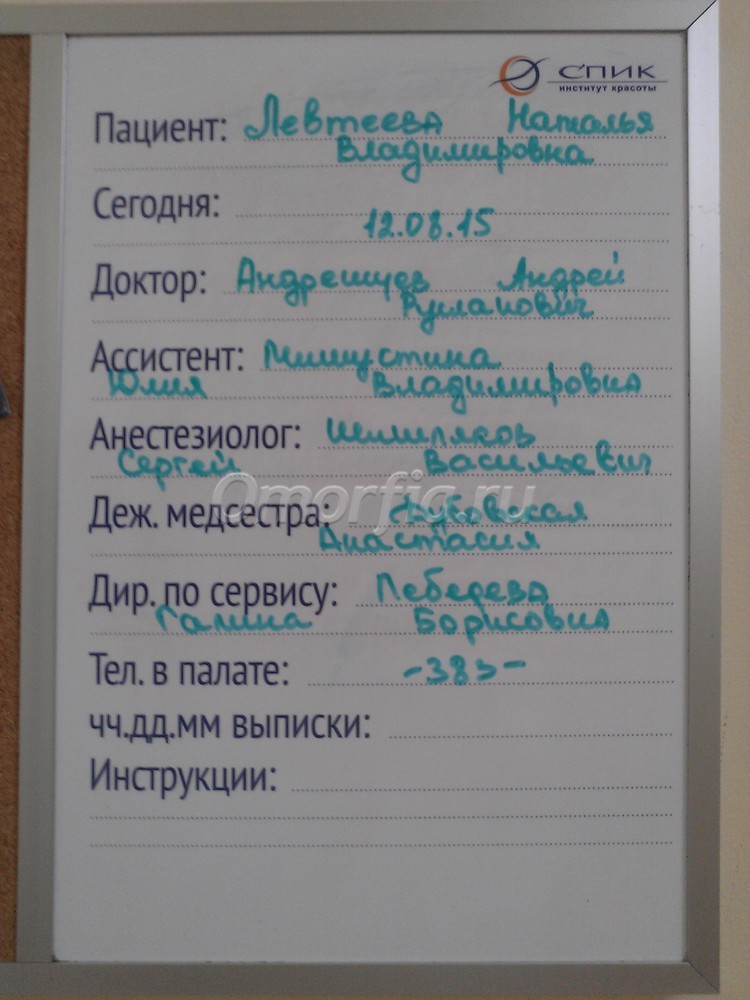 СПИК
институт красоты
Пациент: Левтеева Наталья
Владимировна
Сегодня:
12.08.15
Доктор: Андреищев Андрей
Русланович
Ассистент: Мишустина
Юлия Владимировна
Анестезиолог: Шишляков
Сергей Васильевич
Omorfia.ru
Деж. медсестра: Дубовская
Анастасия
Дир. по сервису: Лебедева
Галина Борисовна
Тел. в палате:
чч.дд.мм выписки:
Инструкции: